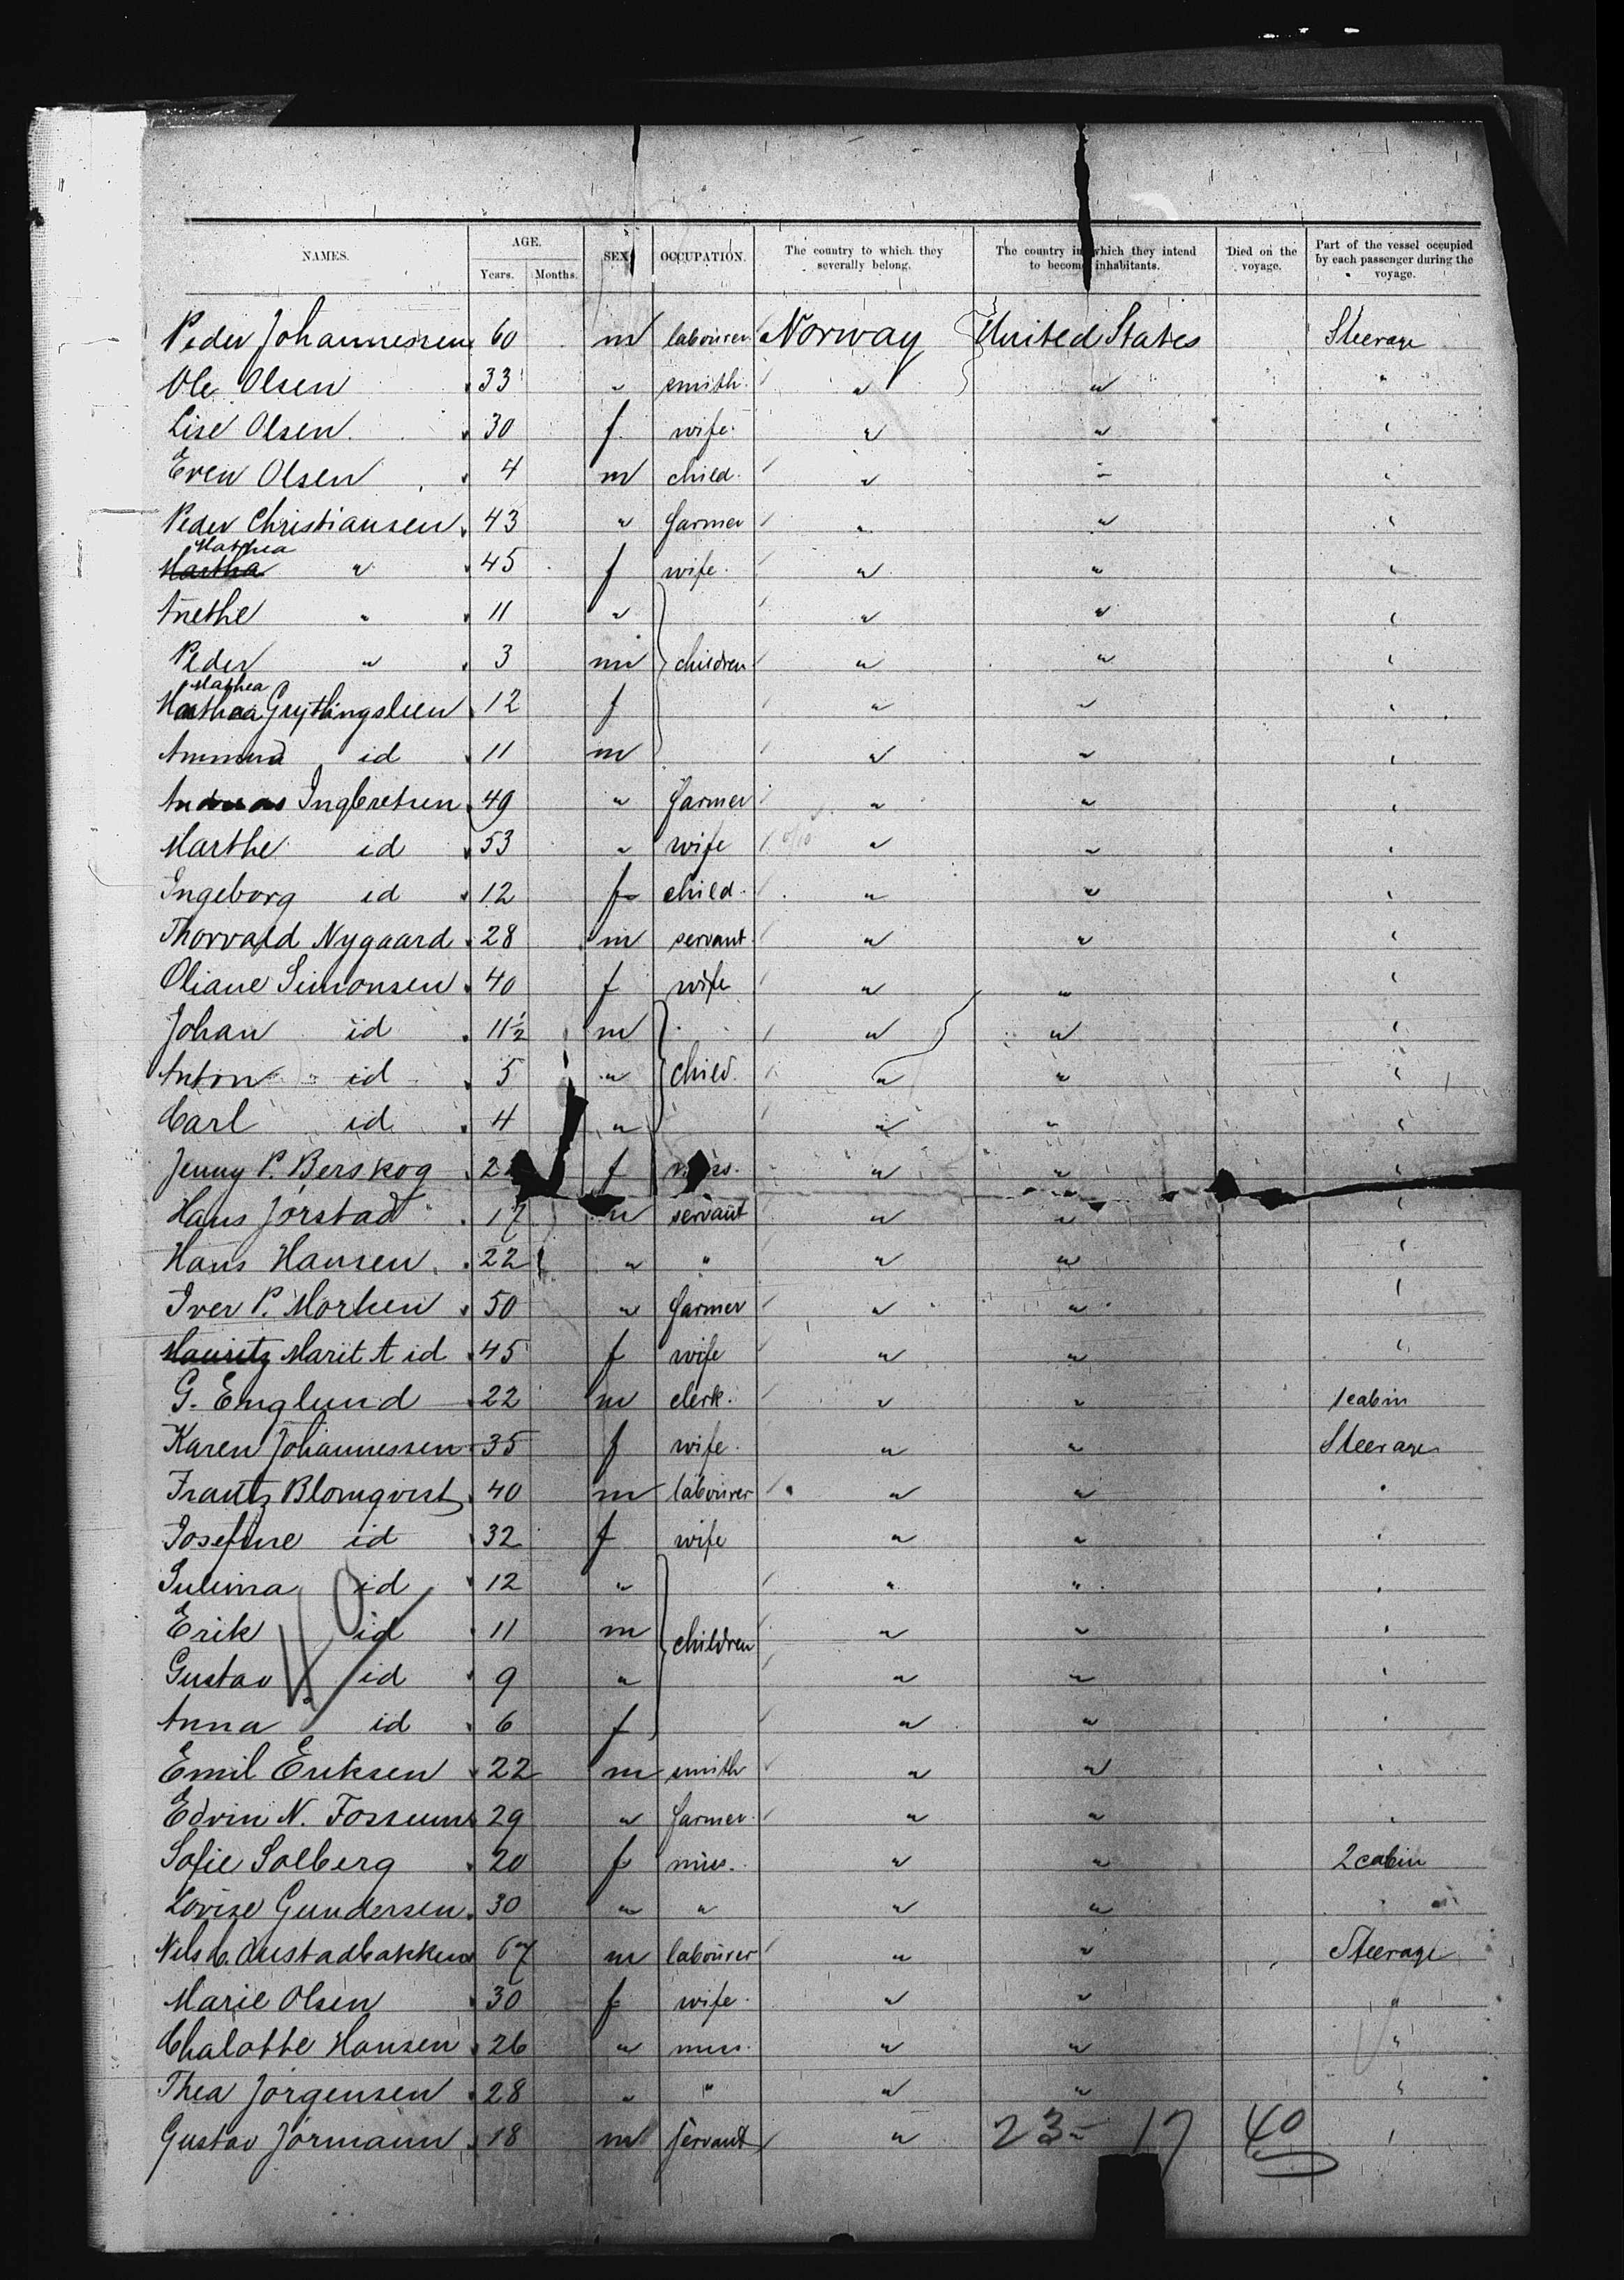 NAMES. AGE. SEX OCCUPATION. The country to which they severally belong. The country in which they intend to become inhabitants. Died on the voyage. Part of the vessel occupied by each passenger during the voyage.
Years. Months.
Peder Johannessen 60 m labourer Norway United States Steerage
Ole Olsen 33 " smith " " "
Lise Olsen 30 f wife " " "
Even Olsen 4 m child " " "
Peder Christiansen 43 " farmer " " "
Mathea
Martha " 45 f wife " " "
Anethe " 11 " " " "
Peder " 3 m children " " "
Mathea
Grythingslien 12 f " " "
id 11 m " " "
Andreas Ingbretsen 49 " farmer " " "
Marthe id 53 " wife " " "
Ingeborg id 12 f child " " "
Thorvald Nygaard 28 m servant " " "
Oliane Simonsen 40 f wife " " "
Johan id 11½ m " " "
Anton id 5 " child. " " "
Carl id 4 " " " "
Jenny P. Berskog f " " "
Hans Jørstad 17 m servant " " "
Hans Hansen 22 " " " " "
Iver P. Morken 50 " farmer " " "
Mauritz Marit A id 45 f wife " " "
G. Englund 22 m clerk. " " 1 cabin
Karen Johannessen 35 f wife " " Steerage
Frantz Blomqvist 40 m labourer " " "
Josefine id 32 f wife " " "
id 12 " " " "
Erik id 11 m children " " "
Gustav id 9 " " " "
Anna id 6 f " " "
40
Emil Eriksen 22 m smith " " "
Edvin N. Fossum 29 " farmer " " "
Sofie Solberg 20 f miss. " " 2 cabin
Lovise Gundersen 30 " " " " "
Nils 67 m labourer " " Steerage
Marie Olsen 30 f wife " " "
Chalotte Hansen 26 " miss. " " "
Thea Jørgensen 28 " " " " "
Gustav Jørmann 18 m servant " " "
23 - 17 40